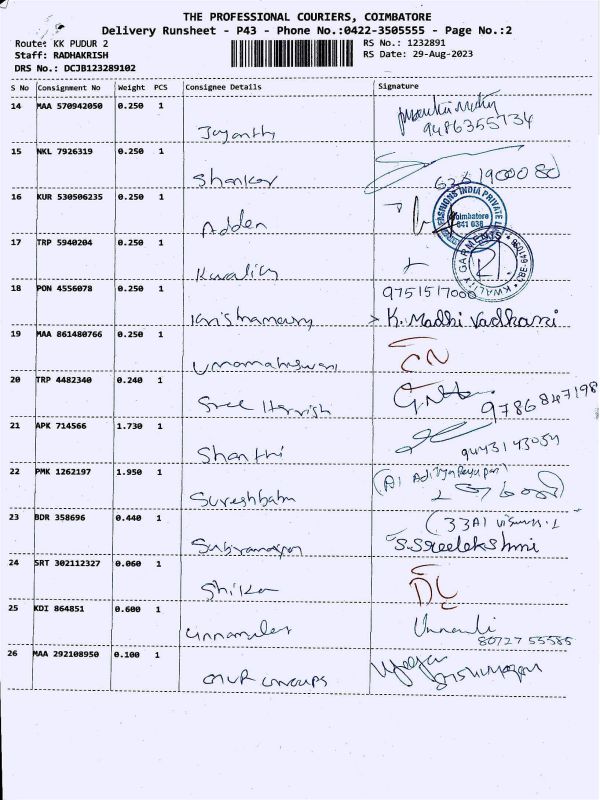 THE PROFESSIONAL COURIERS, COIMBATORE
Delivery Runsheet - P43 - Phone No.:0422-3505555 - Page No.:2
Route: KK PUDUR 2 RS No.: 1232891
Staff: RADHAKRISH RS Date: 29-Aug-2023
DRS No.: DCJB123289102
S No Consignment No Weight PCS Consignee Details Signature
14 MAA 570942050 0.250 1
Jayanthi 9486355734
15 NKL 7926319 0.250 1
Shankar
16 KUR 530506235 0.250 1
FASHIONS INDIA PRIVATE
Coimbatore
641 038
Adden
17 TRP 5940204 0.250 1
KWALITY GARMENTS
Kwality
18 PON 4556078 0.250 1 9751517000
Krishnamoorthy K. Madhi Vadhani
19 MAA 861480766 0.250 1
Umamaheswari
20 TRP 4482340 0.240 1
Sree Harish 9786847198
21 APK 714566 1.730 1
Shanthi 9443143054
22 PMK 1262197 1.950 1
Sureshbabu
23 BDR 358696 0.440 1
S.Sreelekshmi
24 SRT 302112327 0.060 1
Shika
25 KDI 864851 0.600 1
Unnamalai 80727 55585
26 MAA 292108950 0.100 1